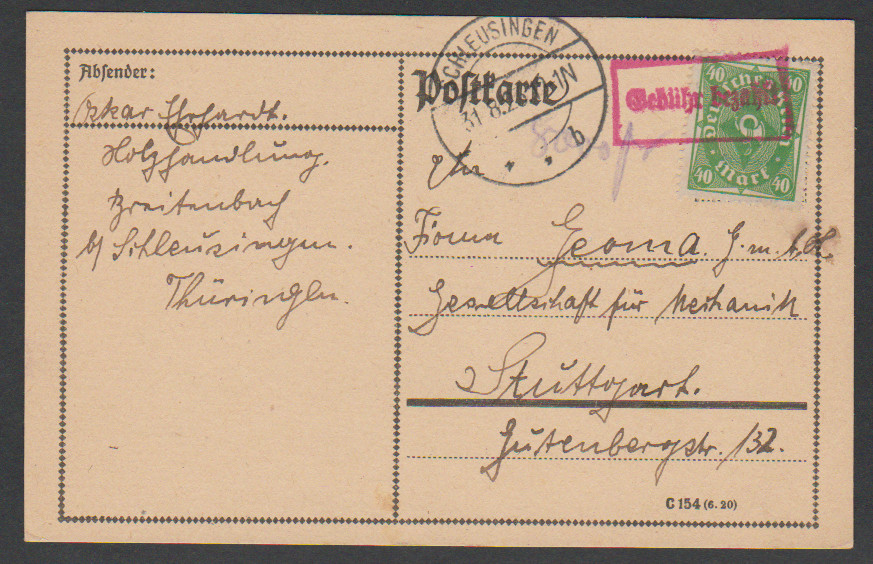 Absender:
Oskar Ehrhardt.
Holzhandlung.
Breitenbach
b/ Schleusingen.
Thüringen.
SCHLEUSINGEN
31.8.2
N
b
Postkarte
Gebühr bezahlt
40 40
Deutsches Reich
Mark
40 40
An
Firma Geoma. G.m.b.H.
Gesellschaft für Mechanik
Stuttgart.
Gutenbergstr. 132.
C 154 (6. 20)